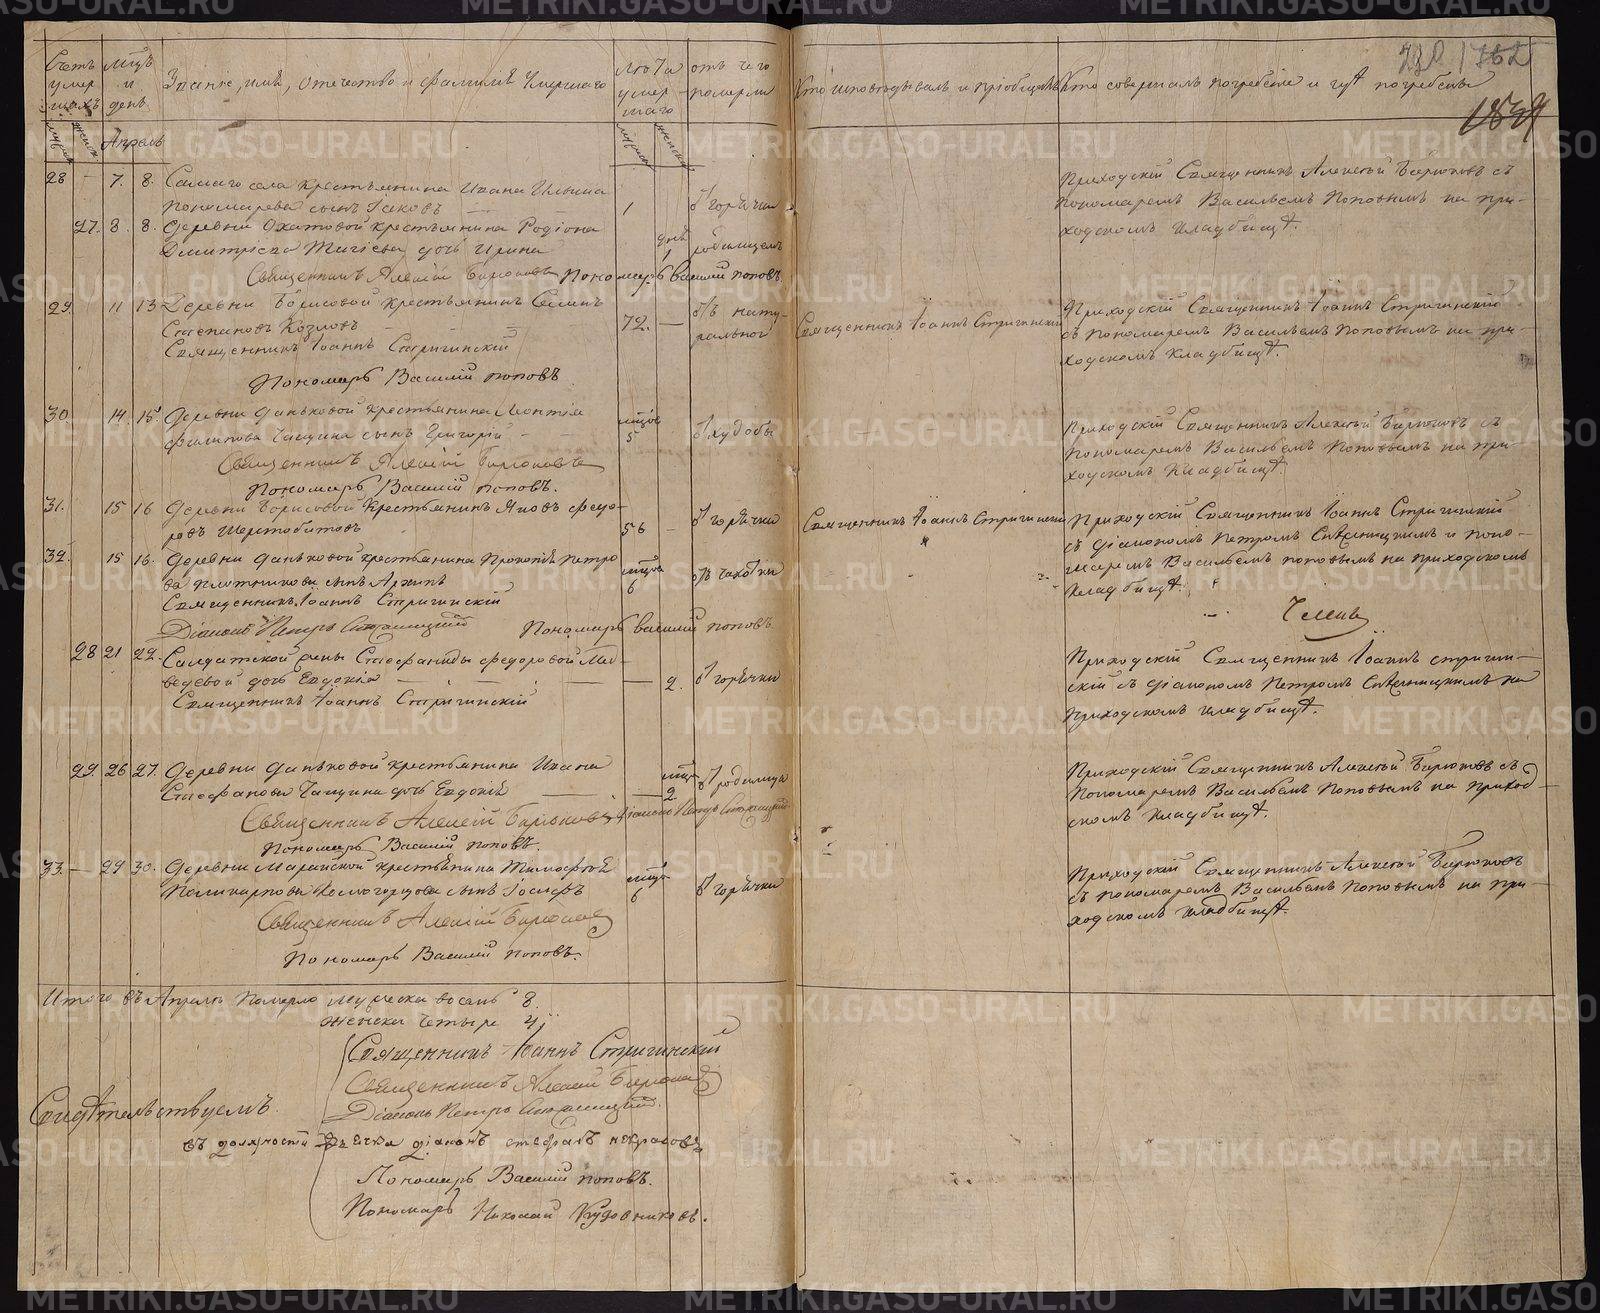 Счетъ умер шихъ
мцъ и день
Званіе, имя, отечество и фамилія Умершаго
Лѣта умер шаго
отъ чего померли
Кто исповѣдывалъ и пріобщалъ
Кто совершалъ погребеніе и гдѣ погребены
Апрель
28 - 7. 8. Самаго села крестьянина Ивана Ильина
Пономарева сынъ Іаковъ 1 отъ горячки
Приходскій Священникъ Алексѣй Бирюковъ съ
пономаремъ Васильемъ Поповымъ на при-
ходскомъ кладбищѣ.
27. 8. 8. Деревни Охатовой крестьянина Родіона
Дмитріева дочь Ирина 1 родимцемъ
Священникъ Алексій Бирюковъ Пономарь Василій поповъ.
29. 11 13 Деревни Борисовой крестьянинъ
Степановъ Козловъ 72. отъ нату-
ральной
Священникъ Іоаннъ Стригинскій
Пономарь Василій поповъ
Священникъ Іоаннъ Стригинскій
Приходскій Священникъ Іоаннъ Стригинскій
съ пономаремъ Васильемъ Поповымъ на при-
ходскомъ кладбищѣ.
30. 14. 15. Деревни Даньковой крестьянина Леонтія
Филипова Чащина сынъ Григорій - 5 отъ худобы
Священникъ Алексій Бирюковъ
Пономарь Василій поповъ.
Приходскій Священникъ Алексѣй Бирюковъ съ
пономаремъ Васильемъ Поповымъ на при-
ходскомъ кладбищѣ
31. 15 16 Деревни Борисовой Крестьянинъ Яковъ Федо-
ровъ Шерстобитовъ 56 - отъ горячки
Священникъ Іоаннъ Стригинскій
Приходскій Священникъ Іоаннъ Стригинскій
съ діакономъ Петромъ и поно-
маремъ Васильемъ поповымъ на приходскомъ
кладбищѣ.
32. 15 16. Деревни Даньковой крестьянина Прокопія Петро
ва Плотникова сынъ Архипъ 6 отъ чахотки
Священникъ Іоаннъ Стригинскій
Діаконъ Петръ Пономарь Василій поповъ
28 21 22. Салдатской жены Стефаниды Федоровой Мед-
ведевой дочь Евдокія 2. отъ горячки
Священникъ Іоаннъ Стригинскій
Приходскій Священникъ Іоаннъ стригин-
скій съ діакономъ Петромъ на
приходскомъ кладбищѣ.
29. 26 27. Деревни Даньковой крестьянина Ивана
Стефанова Чащина дочь Евдокія 2 отъ родимца
Священникъ Алексій Бирюковъ Діаконъ Петръ
Пономарь Василій поповъ.
Приходскій Священникъ Алексѣй Бирюковъ съ
Пономаремъ Васильемъ Поповымъ на приход-
скомъ кладбищѣ.
33. - 29 30. Деревни Марайской крестьянина Тимофея
Поликарпова Холмогорцова сынъ Іосифъ 6 отъ горячки
Священникъ Алексій Бирюковъ
Пономарь Василій поповъ.
Приходскій Священникъ Алексѣй Бирюковъ
съ пономаремъ Васильемъ Поповымъ на при-
ходскомъ кладбищѣ.
Итого въ Апрелѣ померло мужеска восемь 8.
женска четыре 4
Священникъ Іоаннъ Стригинскій
Священникъ Алексій Бирюковъ
Діаконъ Петръ
Свидѣтельствуемъ.
въ должности дьячка діаконъ стефанъ некрасовъ
Пономарь Василій поповъ.
Пономарь Николай Кудовниковъ.
METRIKI.GASO-URAL.RU